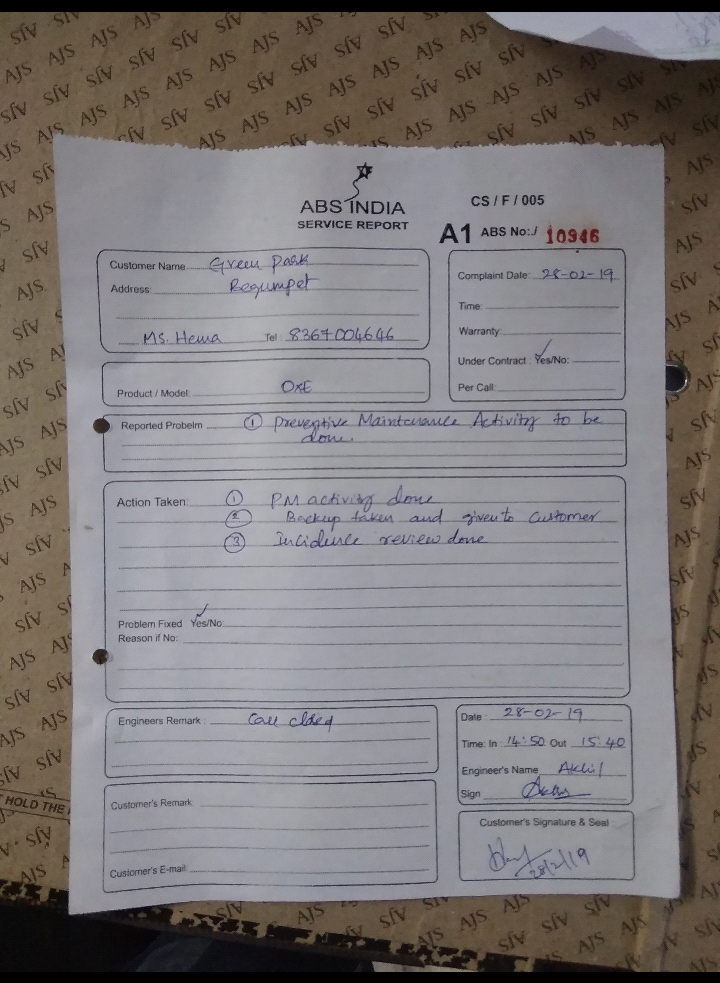 ABS INDIA
SERVICE REPORT
CS / F / 005
A1 ABS No:./ 10946
Customer Name Green Park
Address: Begumpet
Ms. Hema Tel : 8367004646
Complaint Date: 28-02-19
Time:
Warranty:
Under Contract : Yes/No:
Per Call:
Product / Model: OXE
Reported Probelm ① Preventive Maintenance Activity to be
done.
Action Taken: ① PM activity done
② Backup taken and given to Customer
③ Incidence review done
Problem Fixed Yes/No:
Reason if No:
Engineers Remark : Call closed
Date : 28-02-19
Time: In : 14:50 Out 15:40
Engineer's Name Akhil
Sign
Customer's Remark:
Customer's E-mail:
Customer's Signature & Seal
28/2/19
HOLD THE
AJS AJS AJS AJS